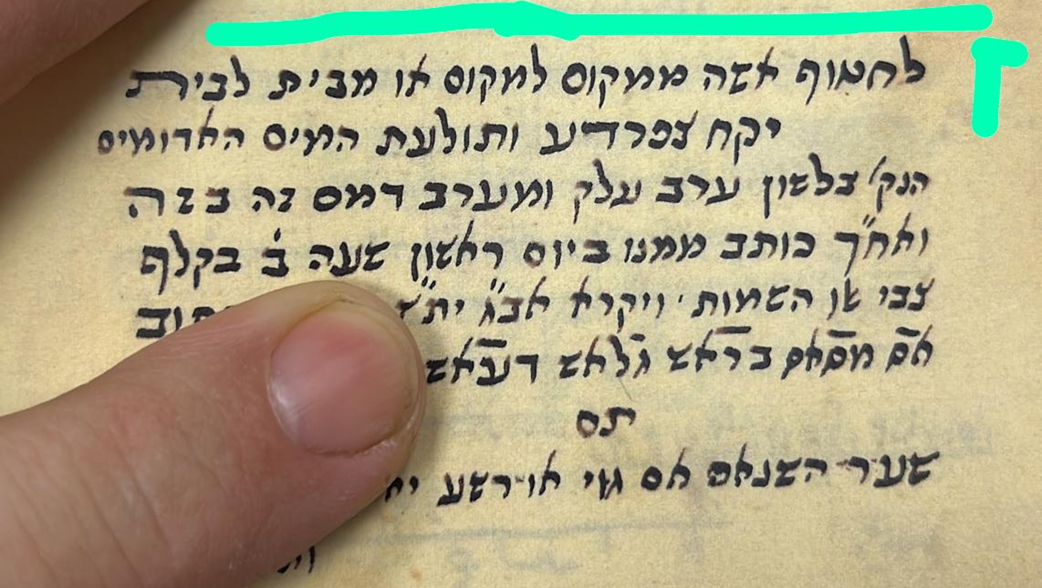 לחטוף אשה ממקום למקום או מבית לבית
יקח צפרדיע ותולעת המים האדומים
הנק' בלשון ערב עלק ומערב דמם זה בזה
ואח"ך כותב ממנו ביום ראשון שעה ב' בקלף
צבי שו השמות ויקרא אב"ג
אם מסאס בראש גלאש דעבאש
תם
שער השנאם אם גוי או רשע